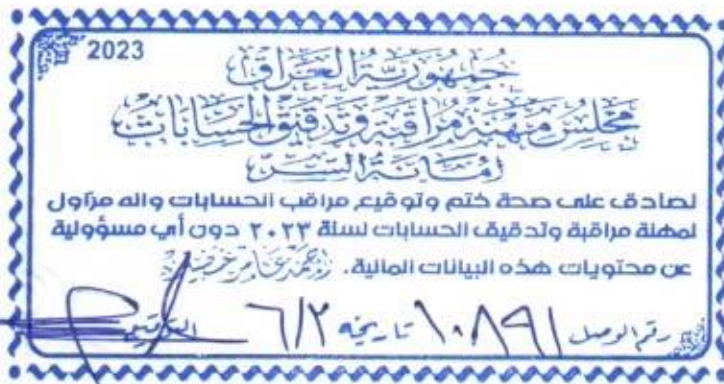 2023
جمهورية العراق
مجلس مهنة مراقبة وتدقيق الحسابات
أمانة السر
نصادق على صحة ختم وتوقيع مراقب الحسابات وانه مزاول
لمهنة مراقبة وتدقيق الحسابات لسنة ٢٠٢٣ دون أي مسؤولية
عن محتويات هذه البيانات المالية.
رقم الوصل ١٠٨٩١ تاريخه ٦/٢ التوقيع